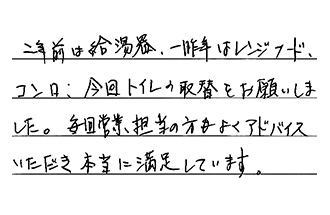 二年前は給湯器、一昨年はレンジフード、
コンロ、今回トイレの取替をお願いしま
した。毎回営業、担当の方がよくアドバイス
いただき本当に満足しています。